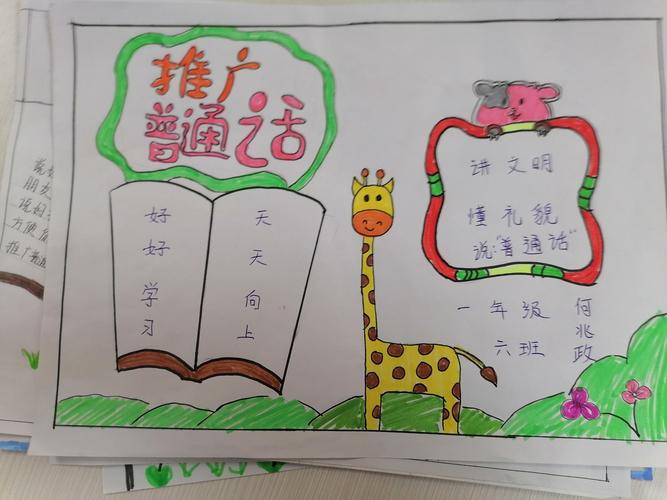 推广
普通话
好好学习
天天向上
讲文明
懂礼貌
说:"普通话"
一年级
六班
何兆政
朋友
说好
方便
推广